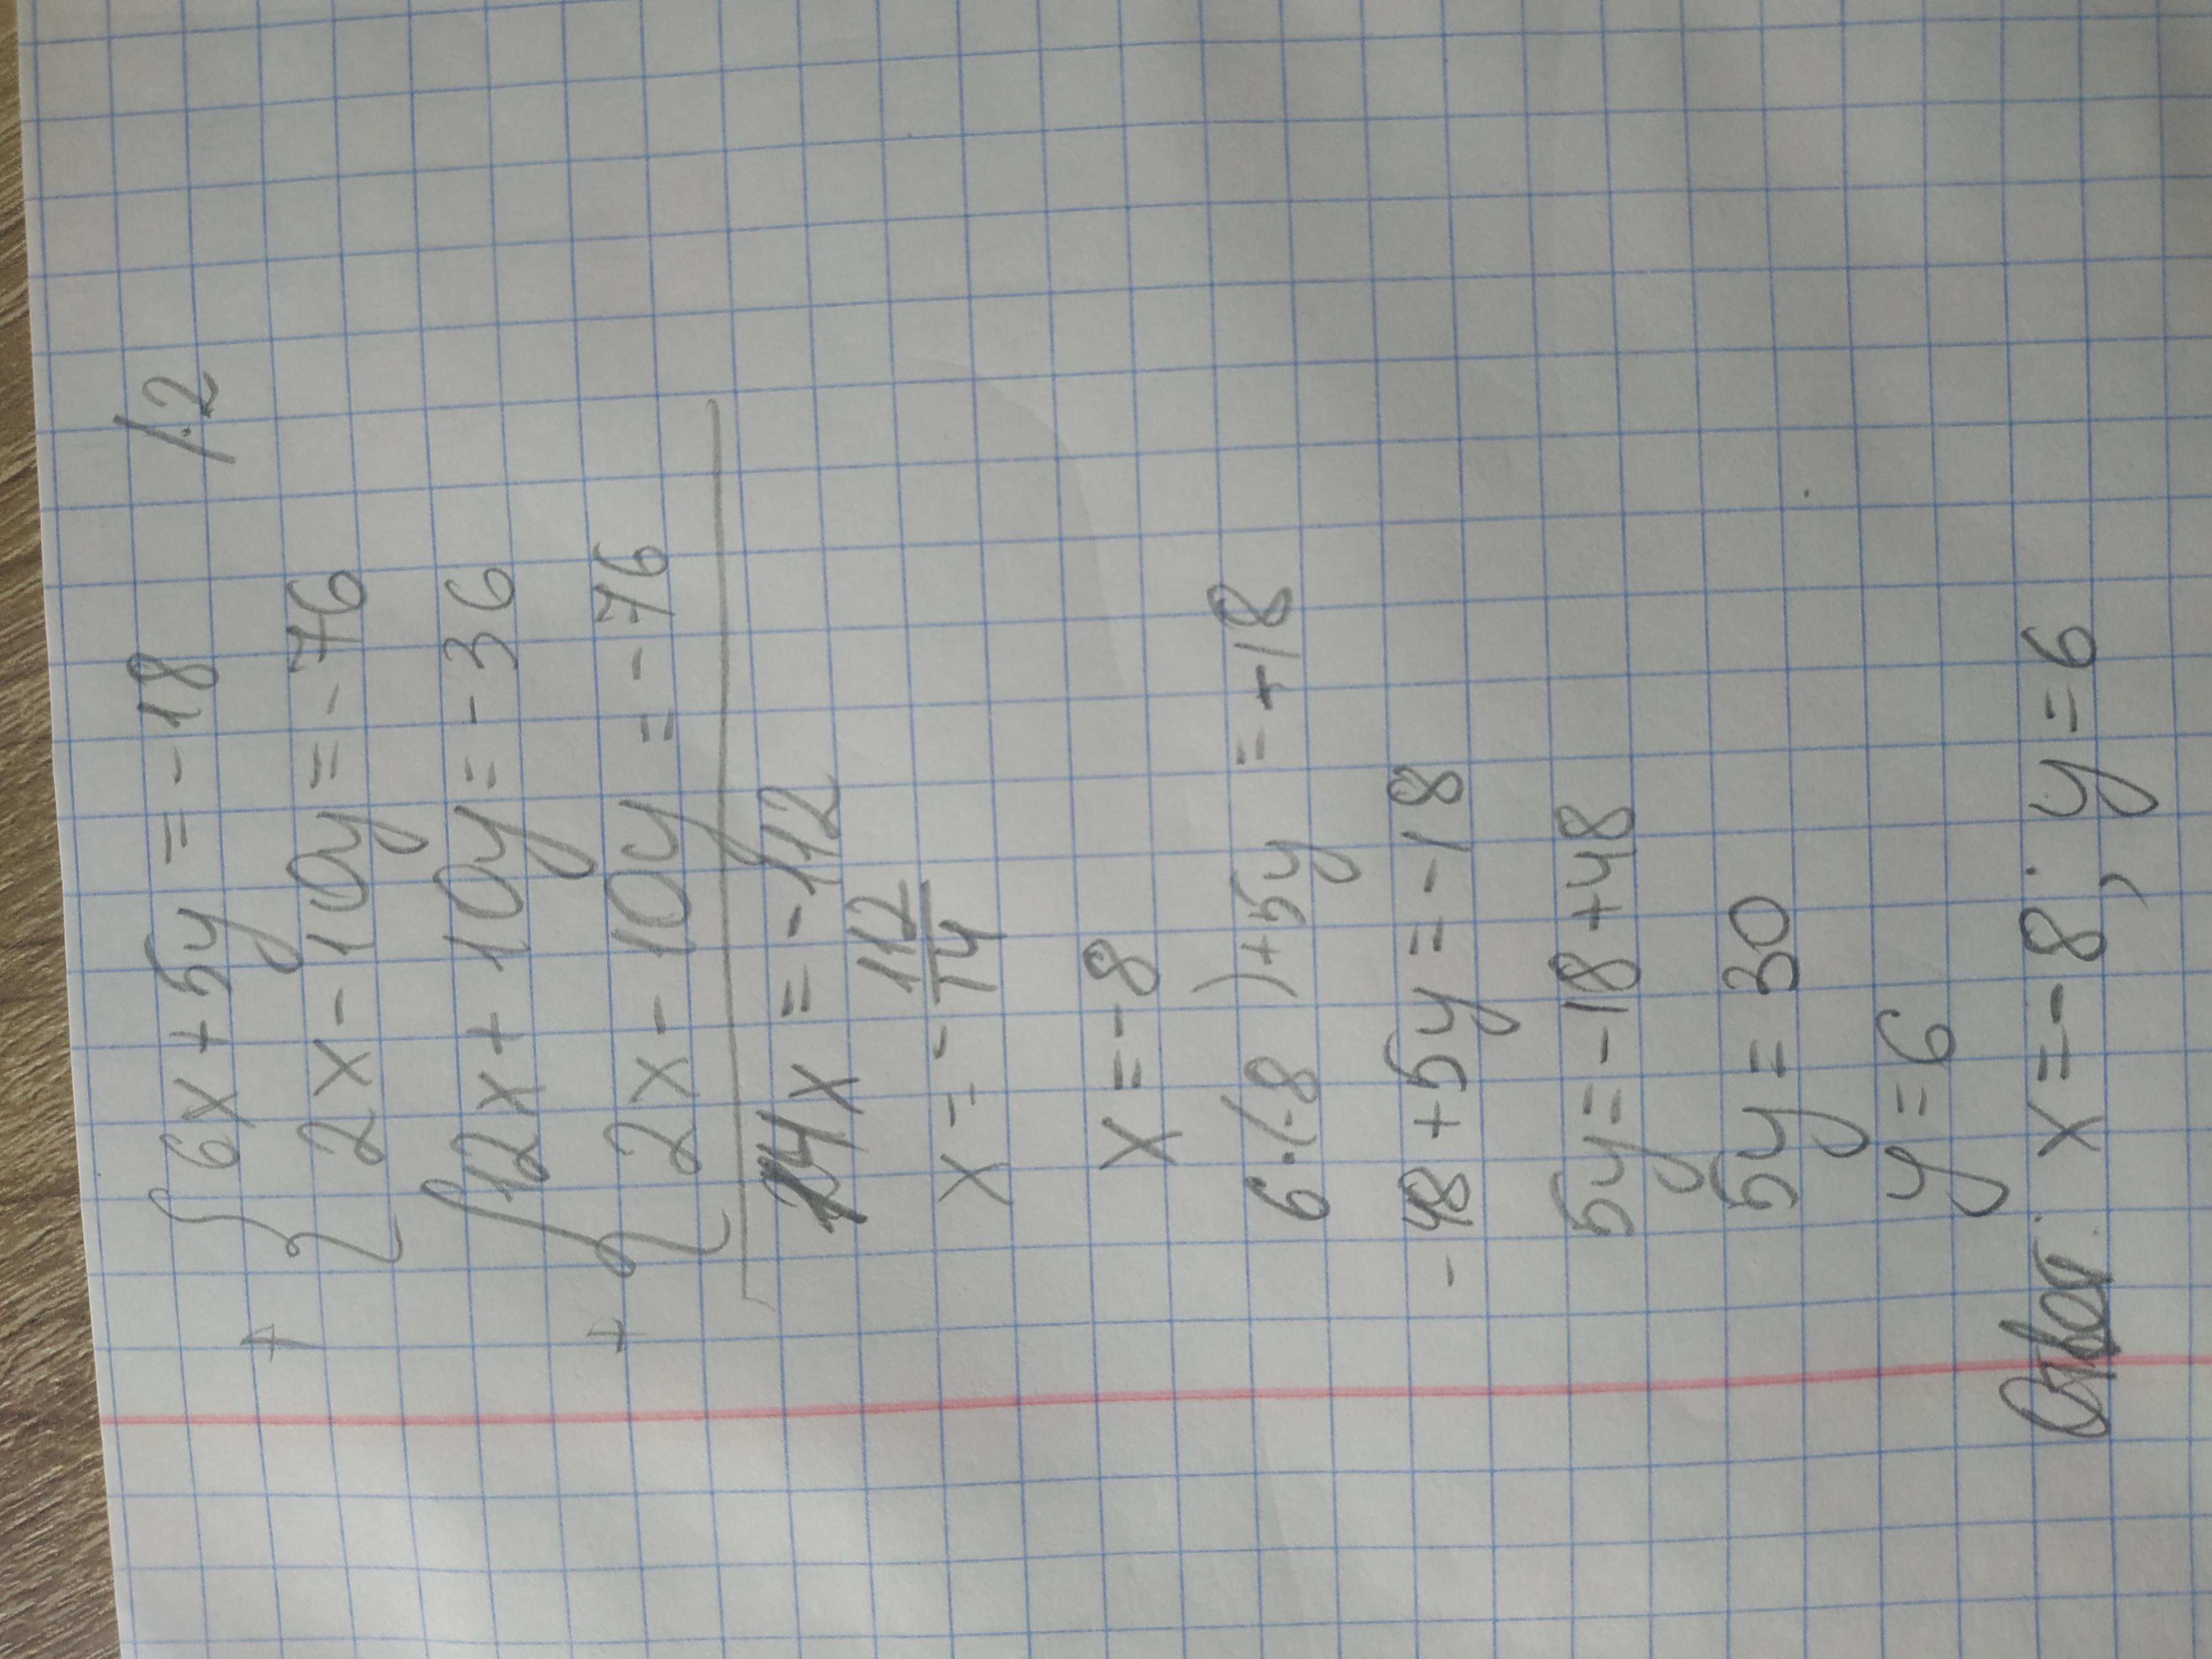 { 6x + 5y = -18 /·2
+ 2x - 10y = -76
{ 12x + 10y = -36
+ 2x - 10y = -76
14x = -112
x = - 112/14
x = -8
6·(-8) + 5y = -18
-48 + 5y = -18
5y = -18 + 48
5y = 30
y = 6
Ответ: x = -8; y = 6